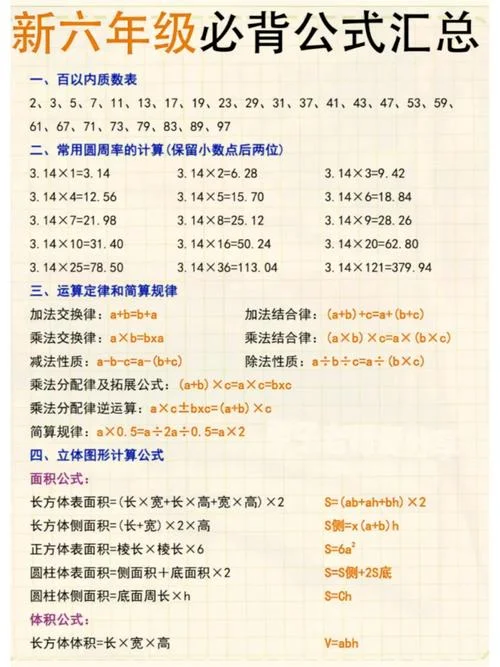 新六年级必背公式汇总
一、百以内质数表
2、3、5、7、11、13、17、19、23、29、31、37、41、43、47、53、59、
61、67、71、73、79、83、89、97
二、常用圆周率的计算(保留小数点后两位)
3.14×1=3.14 3.14×2=6.28 3.14×3=9.42
3.14×4=12.56 3.14×5=15.70 3.14×6=18.84
3.14×7=21.98 3.14×8=25.12 3.14×9=28.26
3.14×10=31.40 3.14×16=50.24 3.14×20=62.80
3.14×25=78.50 3.14×36=113.04 3.14×121=379.94
三、运算定律和简算规律
加法交换律：a+b=b+a 加法结合律：(a+b)+c=a+(b+c)
乘法交换律：a×b=bxa 乘法结合律：(a×b)×c=a×(b×c)
减法性质：a-b-c=a-(b+c) 除法性质：a÷b÷c=a÷(b×c)
乘法分配律及拓展公式：(a+b)×c=a×c=bxc
乘法分配律逆运算：a×c±bxc=(a+b)×c
简算规律：a×0.5=a÷2a÷0.5=a×2
四、立体图形计算公式
面积公式：
长方体表面积=(长×宽+长×高+宽×高)×2 S=(ab+ah+bh)×2
长方体侧面积=(长+宽)×2×高 S侧=x(a+b)h
正方体表面积=棱长×棱长×6 S=6a²
圆柱体表面积=侧面积＋底面积×2 S=S侧+2S底
圆柱体侧面积=底面周长×h S=Ch
体积公式：
长方体体积=长×宽×高 V=abh